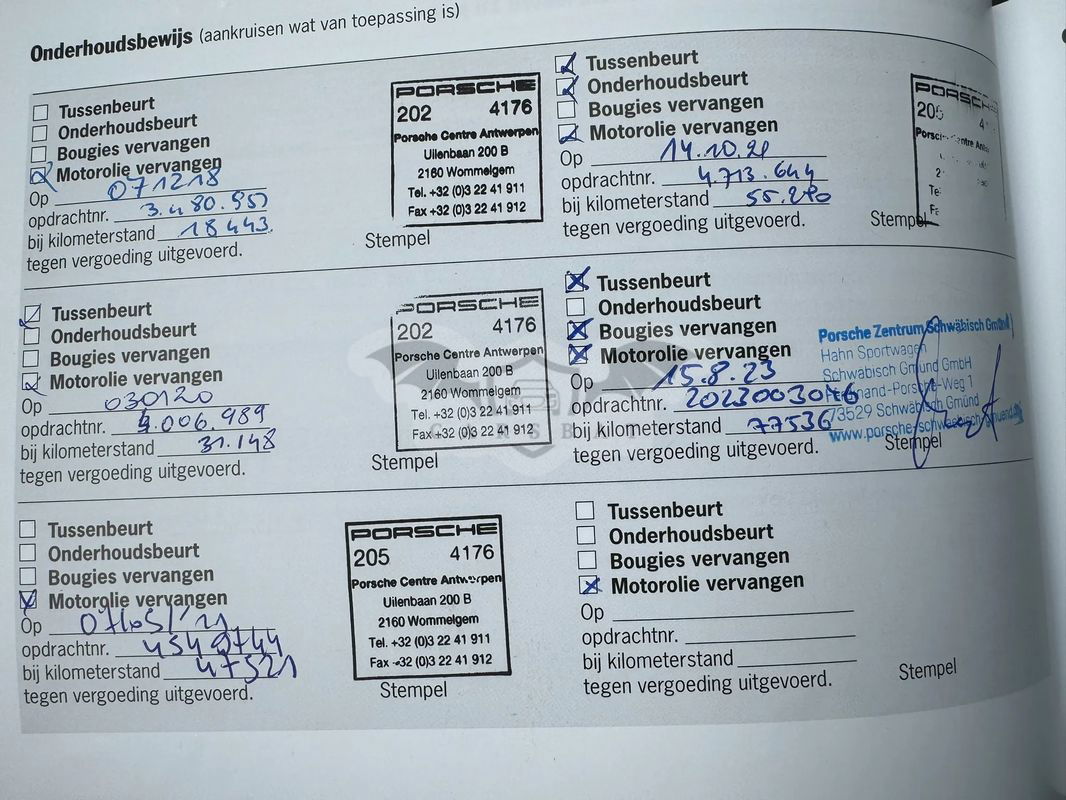 Onderhoudsbewijs (aankruisen wat van toepassing is)
Tussenbeurt
Onderhoudsbeurt
Bougies vervangen
Motorolie vervangen
Op 071218
opdrachtnr. 3.480.957
bij kilometerstand 18443
tegen vergoeding uitgevoerd.
PORSCHE
202 4176
Porsche Centre Antwerpen
Uilenbaan 200 B
2160 Wommelgem
Tel. +32 (0)3 22 41 911
Fax +32 (0)3 22 41 912
Stempel
Tussenbeurt
Onderhoudsbeurt
Bougies vervangen
Motorolie vervangen
Op 030120
opdrachtnr. 4.006.989
bij kilometerstand 31.148
tegen vergoeding uitgevoerd.
PORSCHE
202 4176
Porsche Centre Antwerpen
Uilenbaan 200 B
2160 Wommelgem
Tel. +32 (0)3 22 41 911
Fax +32 (0)3 22 41 912
Stempel
Tussenbeurt
Onderhoudsbeurt
Bougies vervangen
Motorolie vervangen
Op
opdrachtnr. 4549744
bij kilometerstand 47521
tegen vergoeding uitgevoerd.
PORSCHE
205 4176
Porsche Centre Antwerpen
Uilenbaan 200 B
2160 Wommelgem
Tel. +32 (0)3 22 41 911
Fax +32 (0)3 22 41 912
Stempel
Tussenbeurt
Onderhoudsbeurt
Bougies vervangen
Motorolie vervangen
Op 14.10.21
opdrachtnr. 4.713.644
bij kilometerstand 55.280
tegen vergoeding uitgevoerd.
PORSCHE
205
Stempel
Tussenbeurt
Onderhoudsbeurt
Bougies vervangen
Motorolie vervangen
Op 15.8.23
opdrachtnr. 2023003046
bij kilometerstand 77536
tegen vergoeding uitgevoerd.
Porsche Zentrum Schwäbisch Gmünd
Hahn Sportwagen
Schwäbisch Gmünd GmbH
73529 Schwäbisch Gmünd
Stempel
Tussenbeurt
Onderhoudsbeurt
Bougies vervangen
Motorolie vervangen
Op
opdrachtnr.
bij kilometerstand
tegen vergoeding uitgevoerd.
Stempel